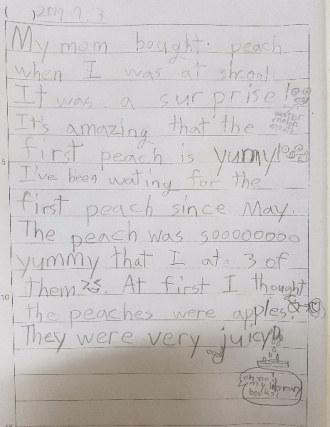 ( ) 2019 7. 3
My mom bought peach
when I was at shcool.
It was a surprise!
It's amazing that the
water melon
first peach is yummy!
5
I've been wating for the
first peach since May.
The peach was sooooooooo
yummy that I ate 3 of
them. At first I thought
10
the peaches were apples.
They were very juicy!
oh no! my library books!